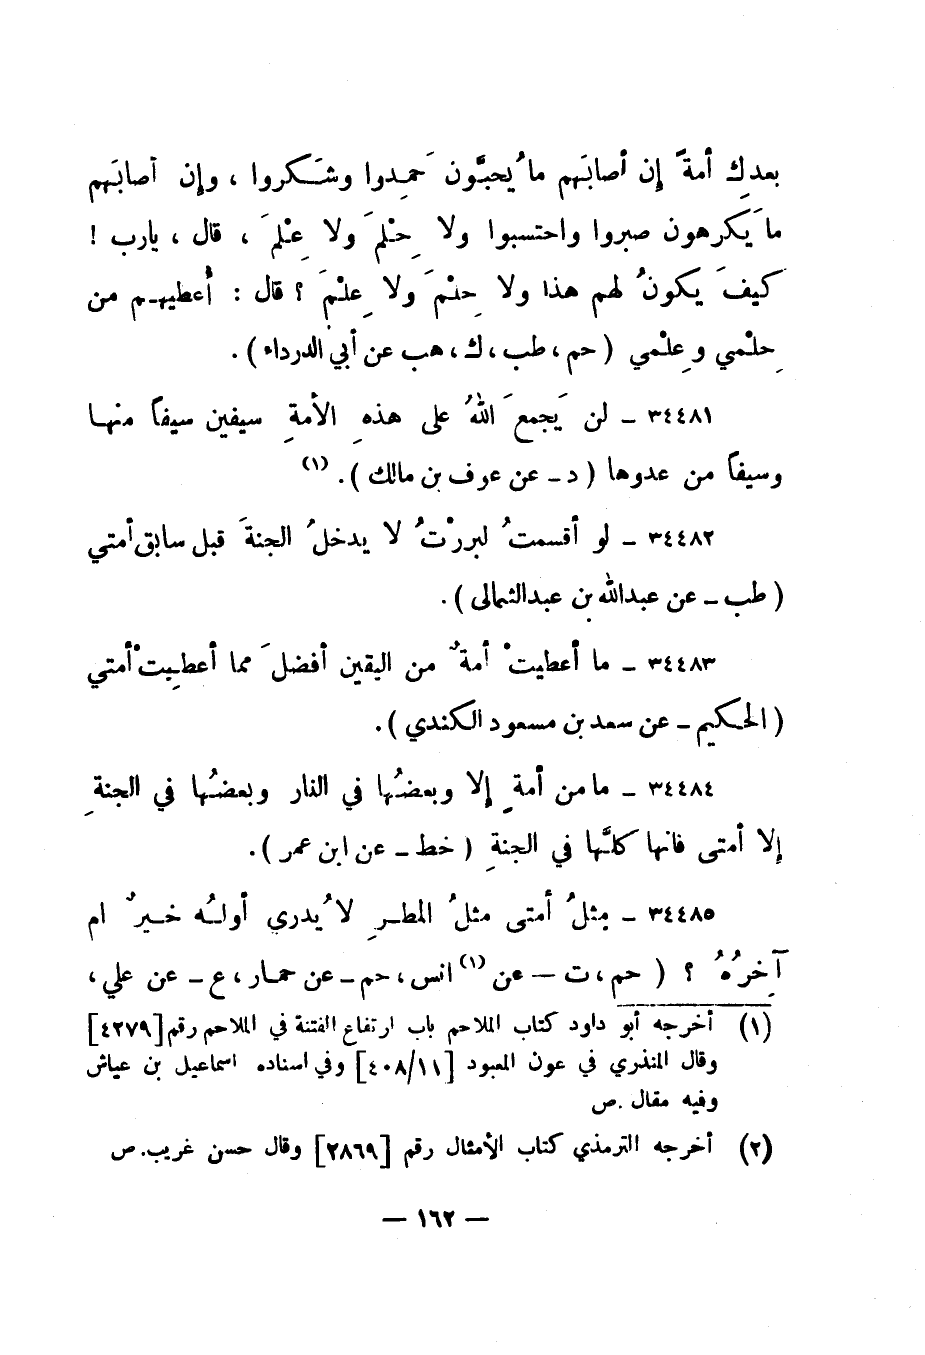 بعدِك أمةً إن أصابَهم ما يُحبُّون حَمِدوا وشَكروا ، وإن أصابَهم
ما يَكرهون صبروا واحتسبوا ولا حِلْمَ ولا عِلْمَ ، قال ، يارب !
كيفَ يكونُ لهم هذا ولا حِلْمَ ولا عِلْمَ ؟ قال : أُعطيهم من
حِلْمي وعِلْمي ( حم ، طب ، ك ، هب عن أبي الدرداء ) .
٣٤٤٨١ ـ لن يَجمعَ اللهُ على هذهِ الأمةِ سيفين سيفاً منها
وسيفاً من عدوها ( د ـ عن عوف بن مالك ) . (١)
٣٤٤٨٢ ـ لو أقسمتُ لبررْتُ لا يدخلُ الجنةَ قبل سابق أمتي
( طب ـ عن عبدالله بن عبدالثمالى ) .
٣٤٤٨٣ ـ ما أعطيتْ أمةٌ من اليقين أفضلَ مما أعطيِتْ أمتي
( الحكيم ـ عن سعد بن مسعود الكندي ) .
٣٤٤٨٤ ـ ما من أمةٍ إلا وبعضُها في النار وبعضُها في الجنةِ
إلا أمتى فانها كلَّها في الجنةِ ( خط ـ عن ابن عمر ) .
٣٤٤٨٥ ـ مِثلُ أمتى مثلُ المطرِ لا يُدري أولُه خيرٌ ام
آخِرُهُ ؟ ( حم ، ت — عن (١) انس ، حم ـ عن عمار ، ع ـ عن علي ،
(١) أخرجه أبو داود كتاب الملاحم باب ارتفاع الفتنة في الملاحم رقم [٤٢٧٩]
وقال المنذري في عون المعبود [٤٠٨/١١] وفي اسناده اسماعيل بن عياش
وفيه مقال .ص
(٢) أخرجه الترمذي كتاب الأمثال رقم [٢٨٦٩] وقال حسن غريب. ص
— ١٦٢ —